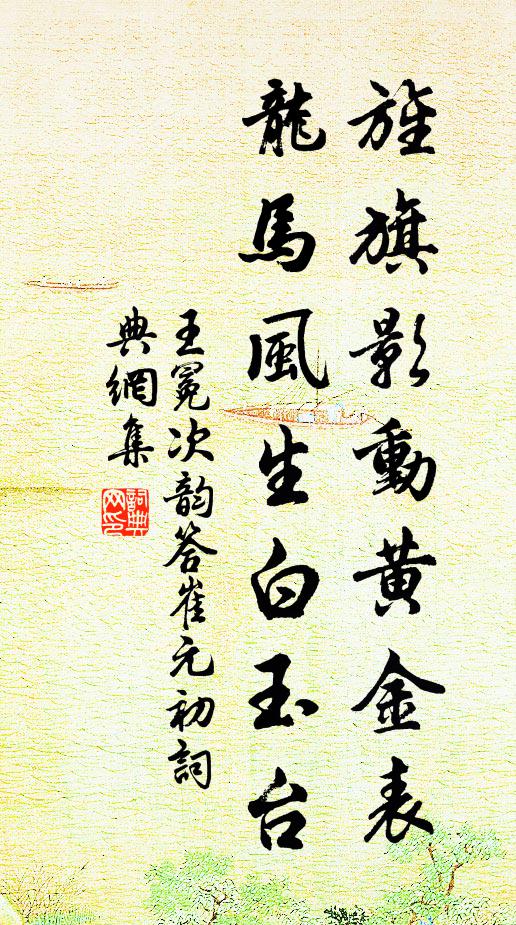 旌旗影動黄金表
龍馬風生白玉台
王冕次韵答崔元初詞
典網集
詞典網印